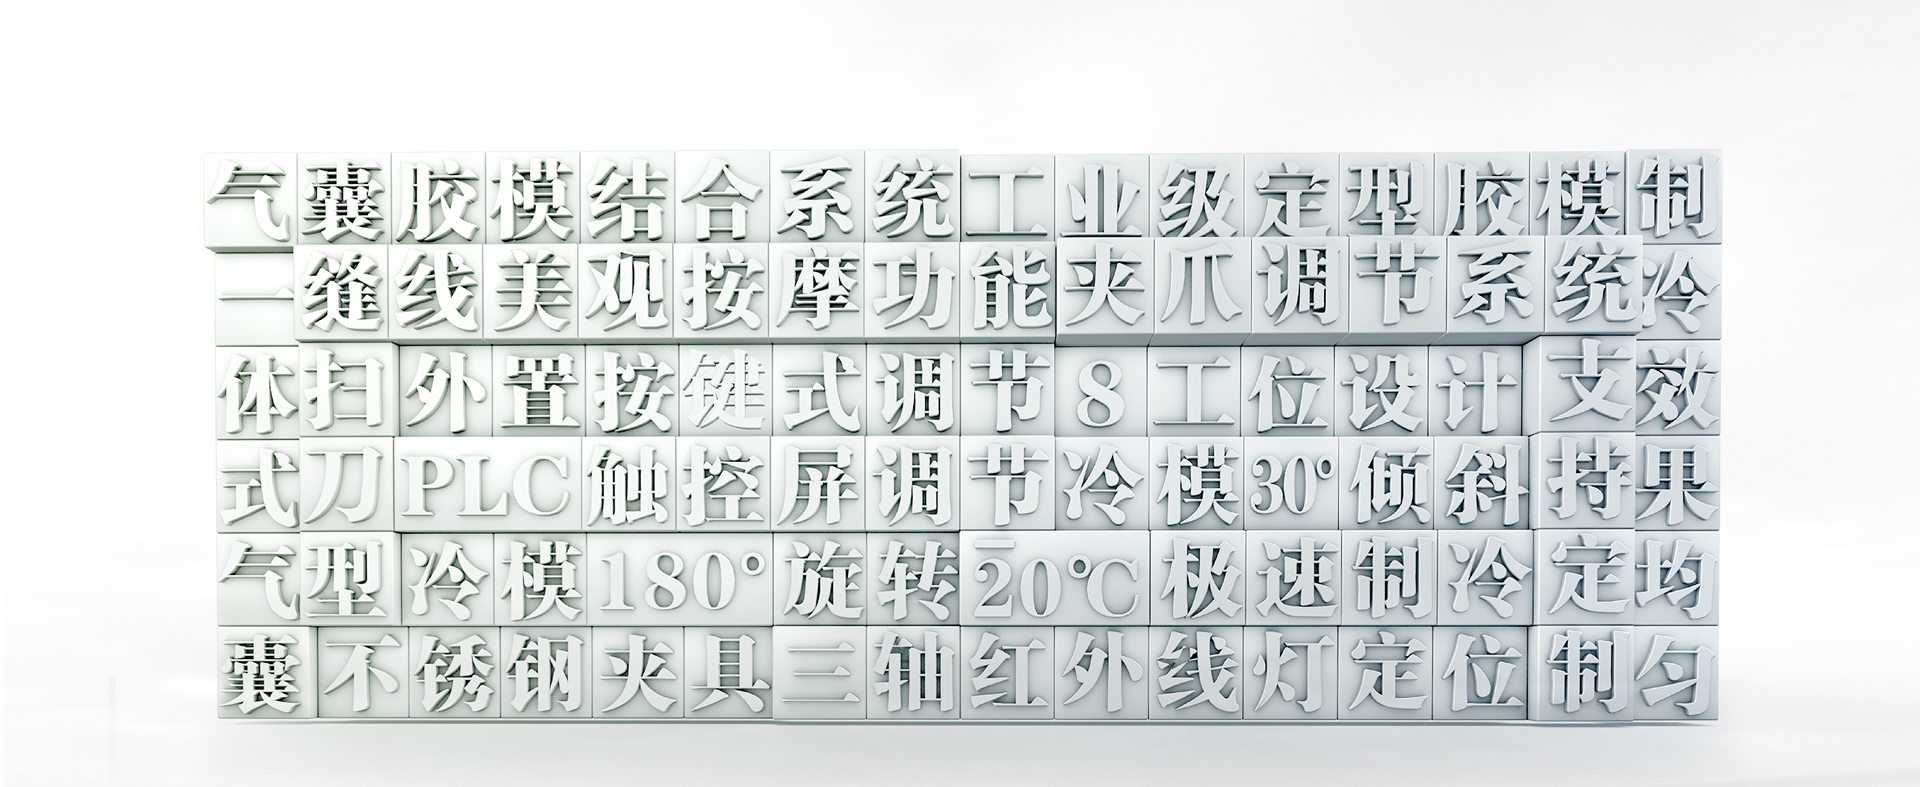 气囊胶模结合系统工业级定型胶模制
一缝线美观按摩功能夹爪调节系统冷
体扫外置按键式调节8工位设计支效
式刀PLC触控屏调节冷模30°倾斜持果
气型冷模180°旋转-20℃极速制冷定均
囊不锈钢夹具三轴红外线灯定位制匀